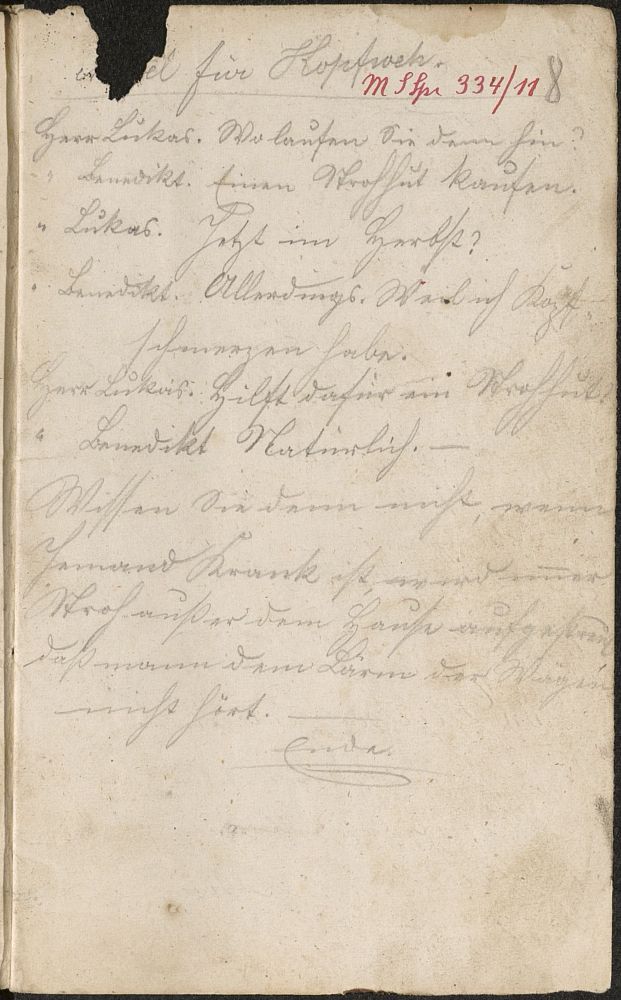 el für Kopfweh.
M S Spr 334/11 8
Herr Lukas. Wo laufen Sie denn hin?
" Benedikt. Einen Strohhut kaufen.
" Lukas. Jetzt im Herbst?
" Benedikt. Allerdings. Weil ich Kopf-
schmerzen habe.
Herr Lukas. Hilft dafür ein Strohhut?
" Benedikt Natürlich. —
Wissen Sie denn nicht, wenn
Jemand Krank ist, wird immer
Stroh außer dem Hause aufgestreut
daß mann dem Lärm der Wägen
nicht hört. —
Ende.